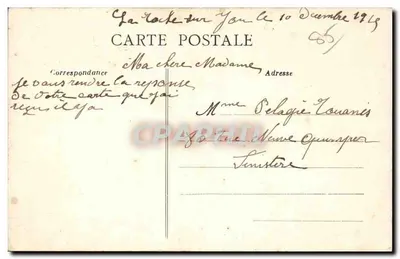 La Roche sur Yon le 10 décembre 1915
85
CARTE POSTALE
Ma chère Madame
Correspondance
Adresse
je vous rendre la reponse
de votre carte que j'ai
reçus il y a
Mme Pelagie Touanis
Rue Neuve Quimper
Finistere
CPARAMA